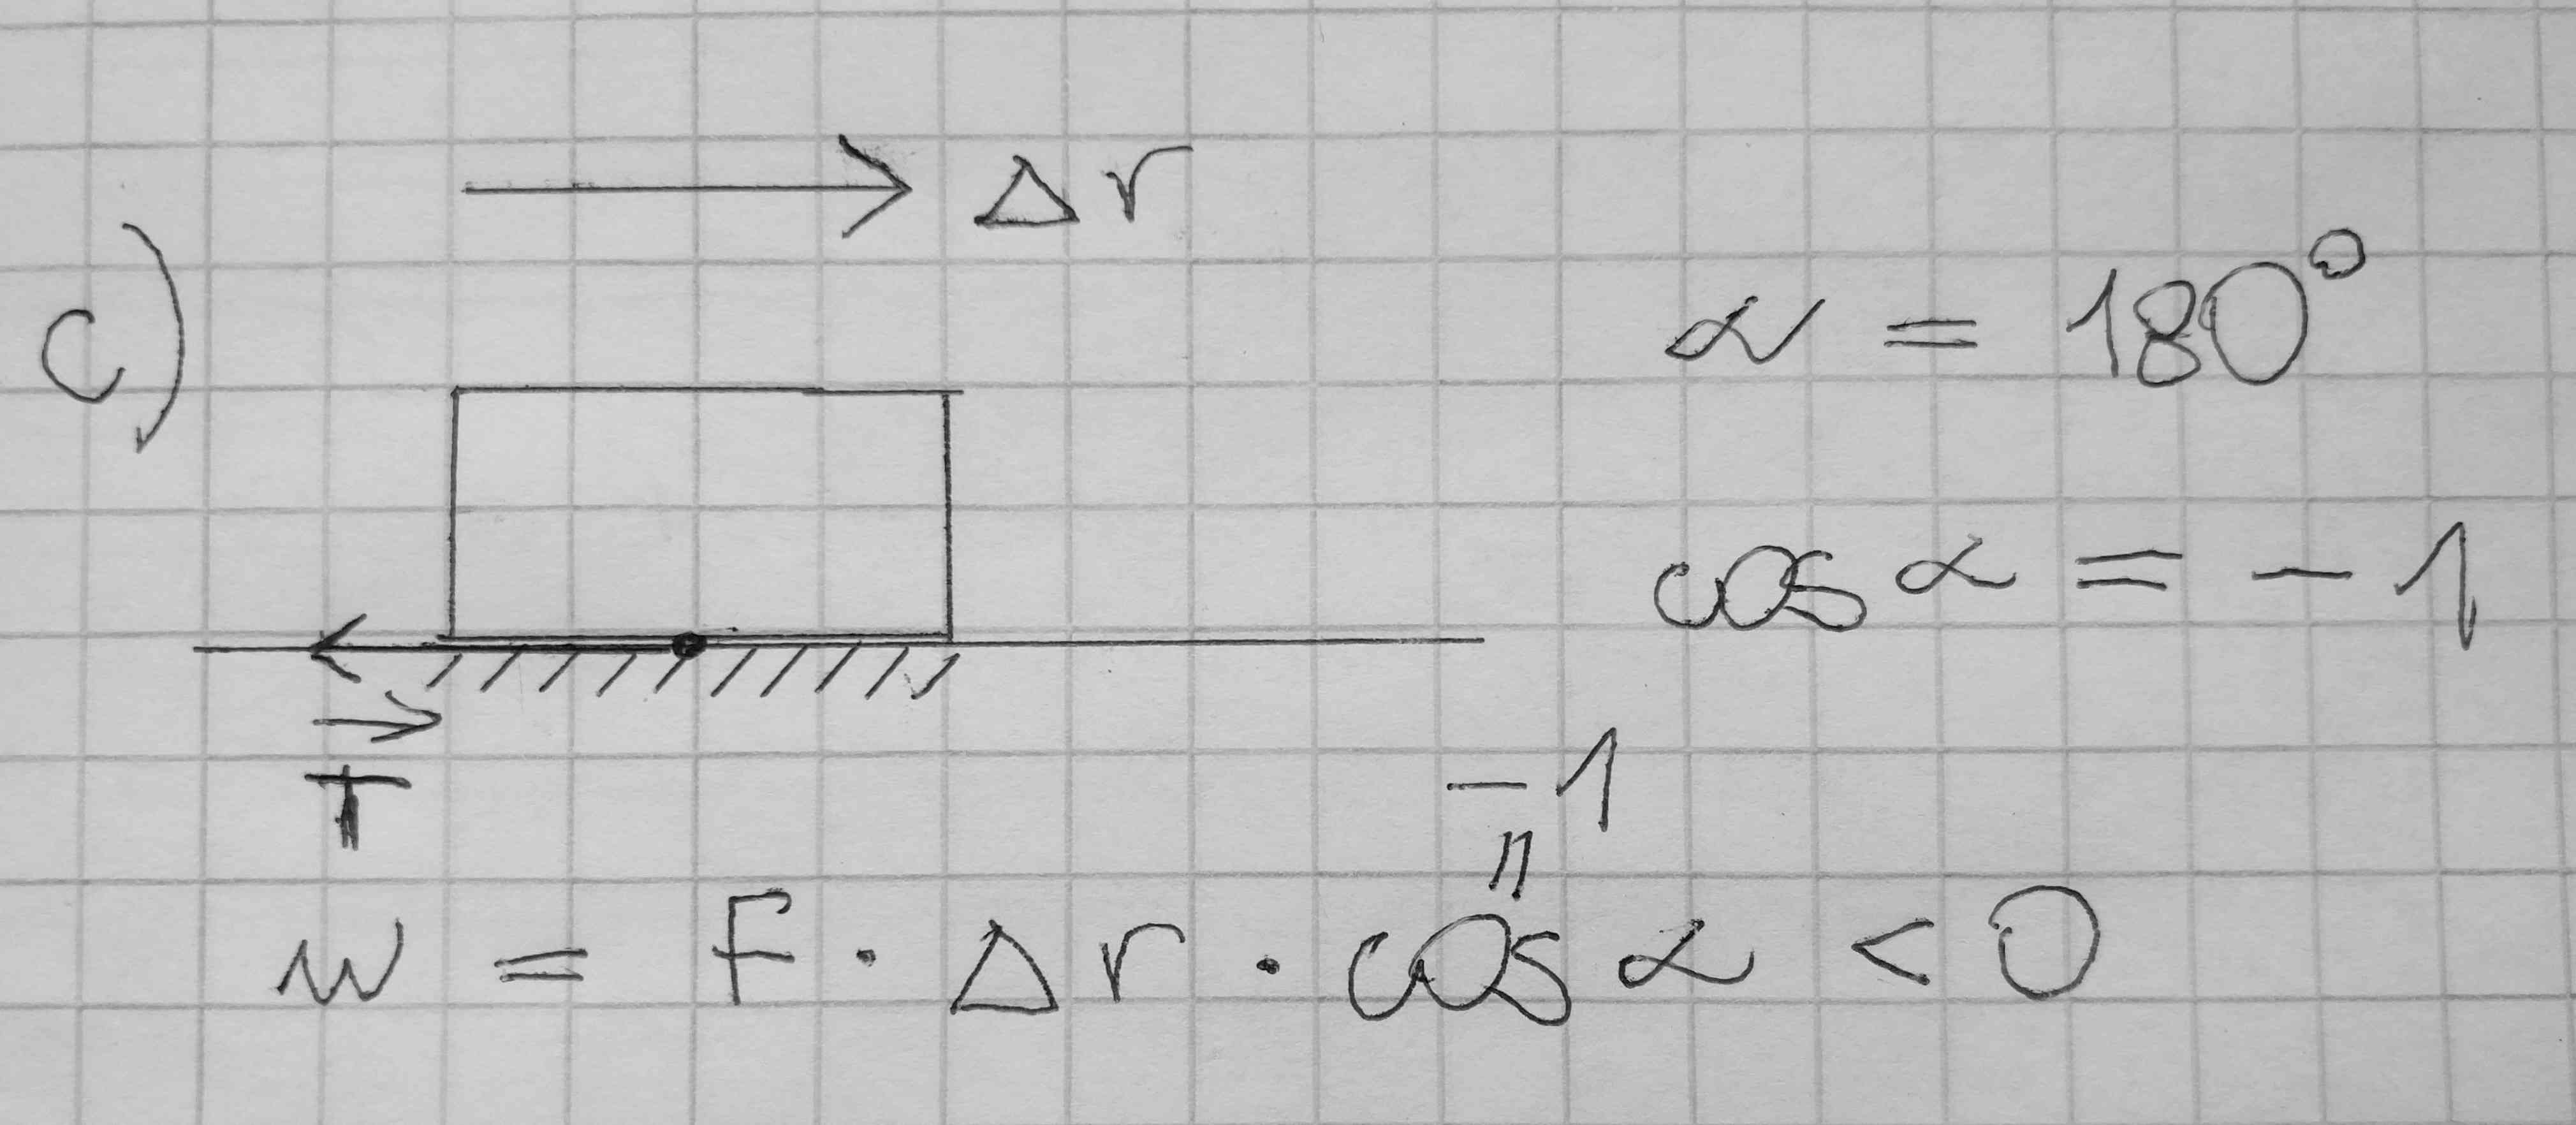 Δr
c)
α = 180°
cos α = - 1
T
- 1
=
w = F · Δr · cos α < 0